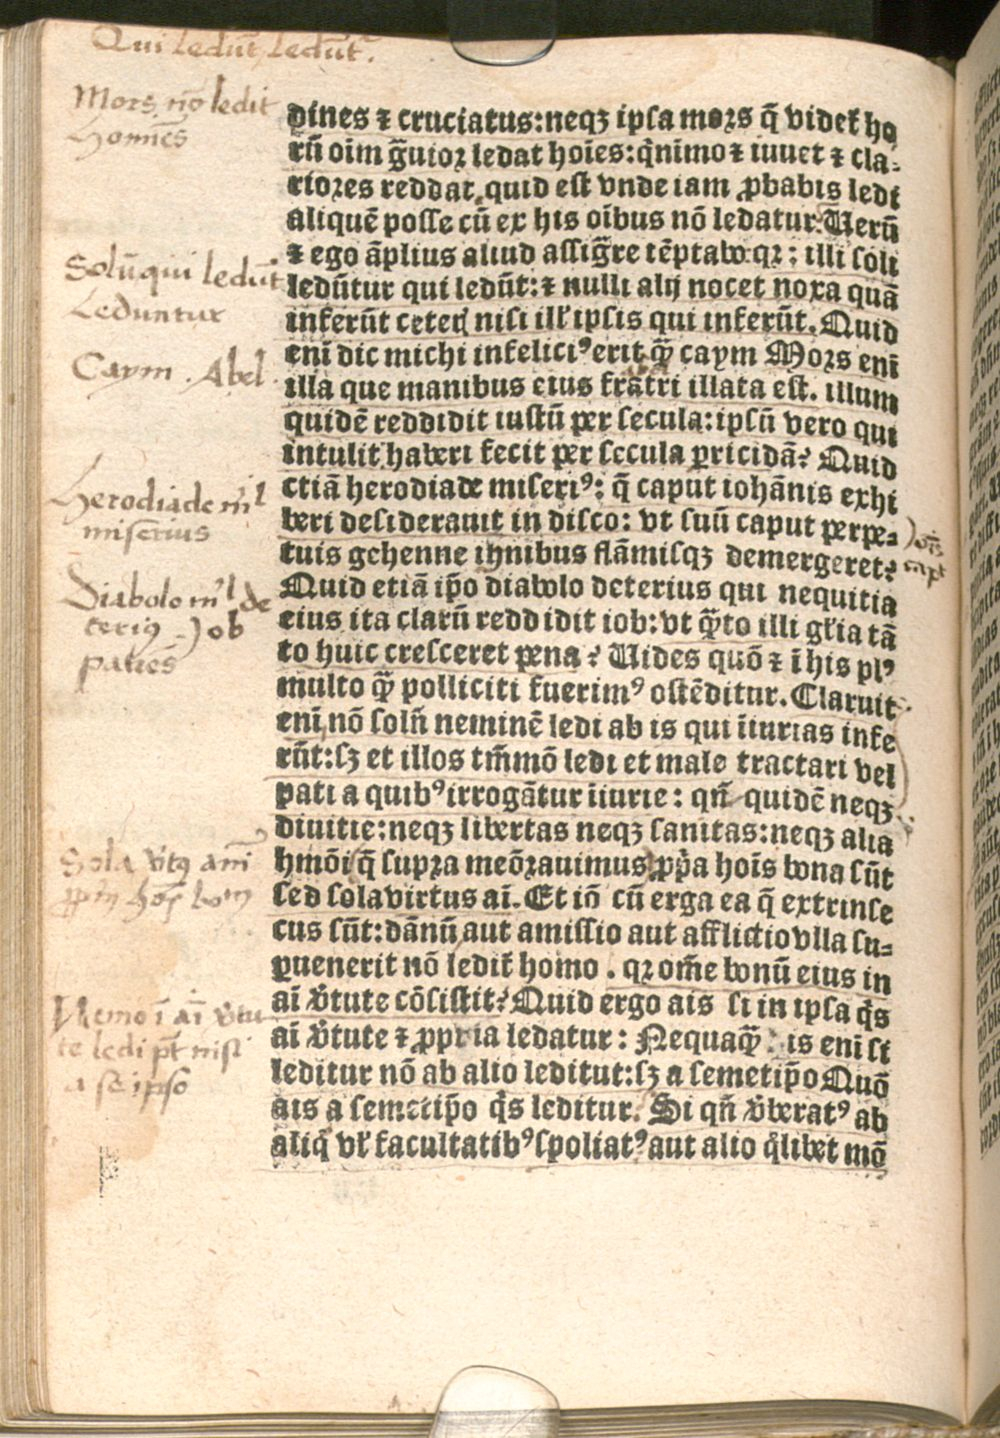 Qui ledūt, ledūtᷣ.
Mors nō ledit
homēs
Solū qui ledūt
Leduntur
Caym . Abel
Herodiade nil
miserius
Diabolo nil de
terius Job
patiēs
Sola virtꝰ ani
Nemo ī aī v̓tu
te ledi pt̄ nisi
a se ipso
dines ⁊ cruciatus: neqꝫ ipsa mors q̄ videt᷑ ho
rū oīm g̃uior ledat hoīes: q̓nīmo ⁊ iuuet ⁊ cla-
riores reddat. quid est vnde iam ꝓbabis ledi
aliquē posse cū ex his oībus nō ledatur. Uerū
⁊ ego āplius aliud assig̃re tēptabo: qꝛ: illi soli
ledūtur qui ledūt: ⁊ nulli alij nocet noxa quā
inferūt ceteri nisi ill' ipsis qui inferūt. Quid
enī dic michi infeliciꝰ erit q̄ꝫ caym Mors enī
illa que manibus eius fratri illata est. illum
quidē reddidit iustū per secula: ipsū vero qui
intulit haberi fecit per secula ꝑricidā? Quid
etiā herodiade miseriꝰ: q̄ caput iohānis exhi
beri desiderauit in disco: vt suū caput perpe-
tuis gehenne ignibus flāmisqꝫ demergeret?
Quid etiā ip̄o diabolo deterius qui nequitia
eius ita clarū reddidit iob: vt q̄ꝫto illi gl'ia tā
to huic cresceret pena? Uides quō ⁊ ī his plꝰ
multo q̄ꝫ polliciti fuerimꝰ ostēditur. Claruit
enī nō solū neminē ledi ab is qui īiurias infe
rūt: sꝫ et illos tm̄mō ledi et male tractari vel
pati a quibꝰ irrogātur īiurie: qn̄ quidē neqꝫ
diuitie: neqꝫ libertas neqꝫ sanitas: neqꝫ alia
hmōi q̄ supra meōrauimus ꝓp̄a hoīs bona sūt
sed sola virtus aī. Et iō cū erga ea q̄ extrinse
cus sūt: dānū aut amissio aut afflictio vlla su-
ꝑuenerit nō ledit᷑ homo. qꝛ om̄e bonū eius in
aī v̓tute cōsistit? Quid ergo ais si in ipsa q̓s
aī v̓tute ⁊ ꝓpria ledatur: Nequaq̄ꝫ: is enī si
leditur nō ab alio leditut: sꝫ a semetip̄o Quō
ais a semetip̄o q̓s leditur. Si qn̄ v̓beratꝰ ab
aliq̄ vl' facultatibꝰ spoliatꝰ aut alio q̓libet mō